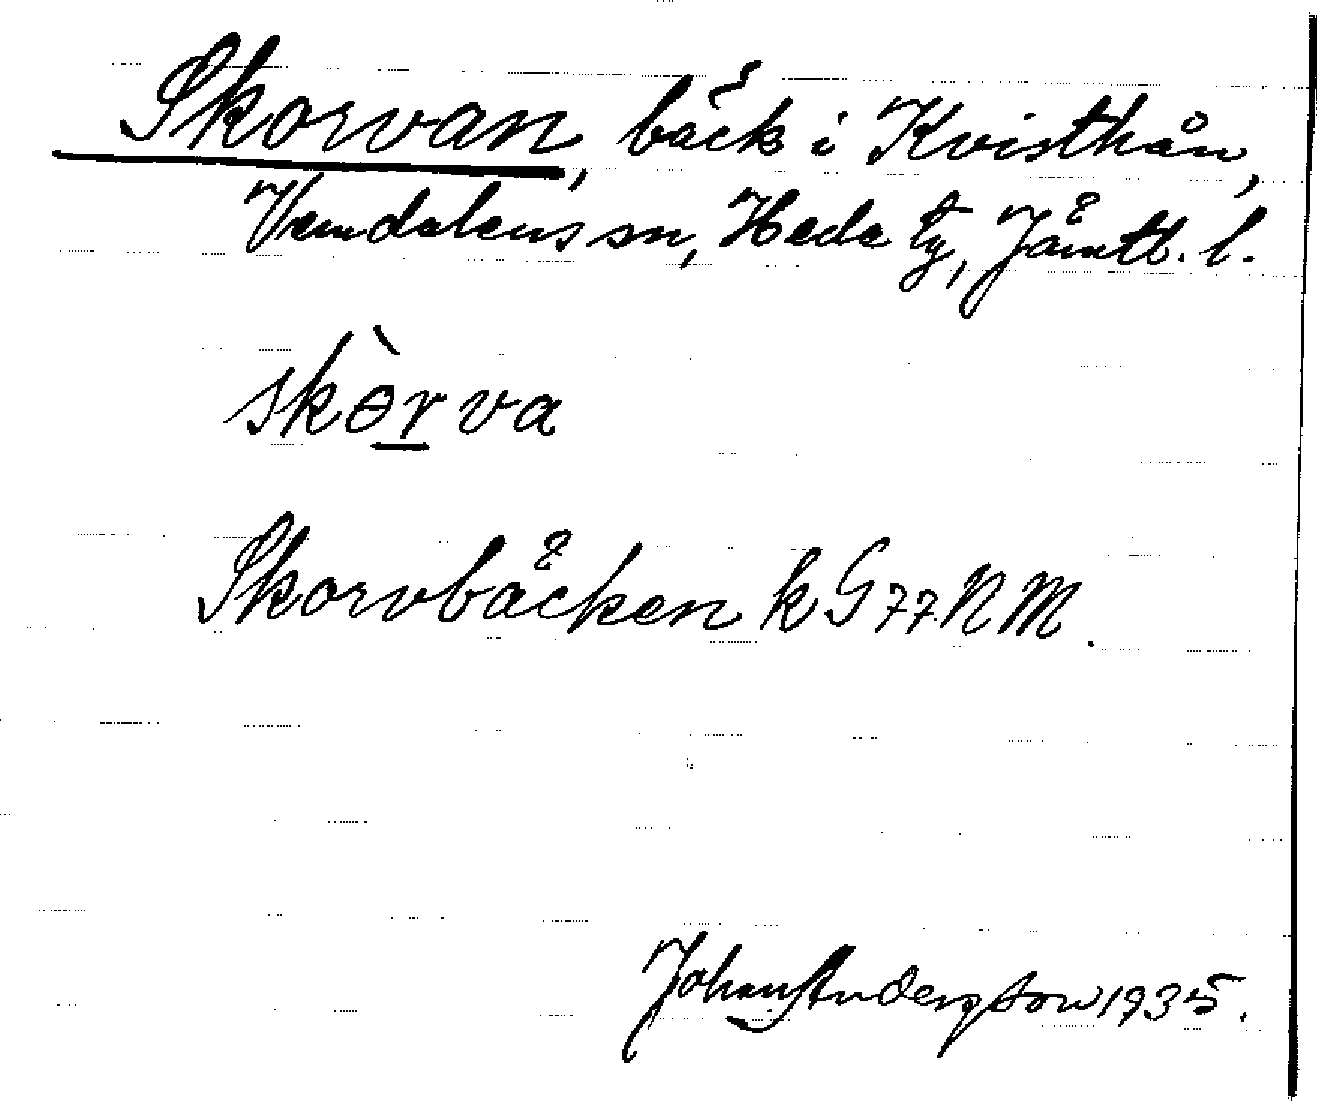 Skorvan, bäck i Kvisthån,
Vemdalens sn, Hede tg, Jämtl. l.
skòrva
Skorvbäcken k G 77 N M.
Johan Andersson 1935.